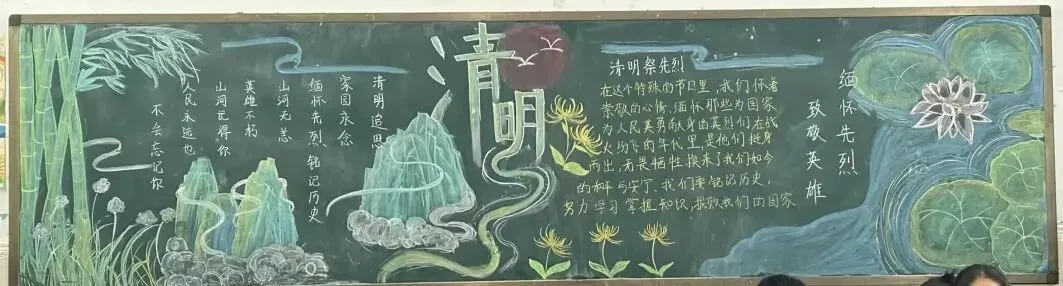 清明
清明追思
家国永念
缅怀先烈 铭记历史
山河无恙
英雄不朽
山河记得你
人民永远也
不会忘记你
清明祭先烈
在这个特殊的节日里,我们怀着
崇敬的心情,缅怀那些为国家
,为人民英勇献身的英烈们,在战
火纷飞的年代里,是他们挺身
而出,无畏牺牲,换来了我们如今
的和平与安宁.我们要铭记历史,
努力学习掌握知识,报效我们的国家
缅怀先烈
致敬英雄